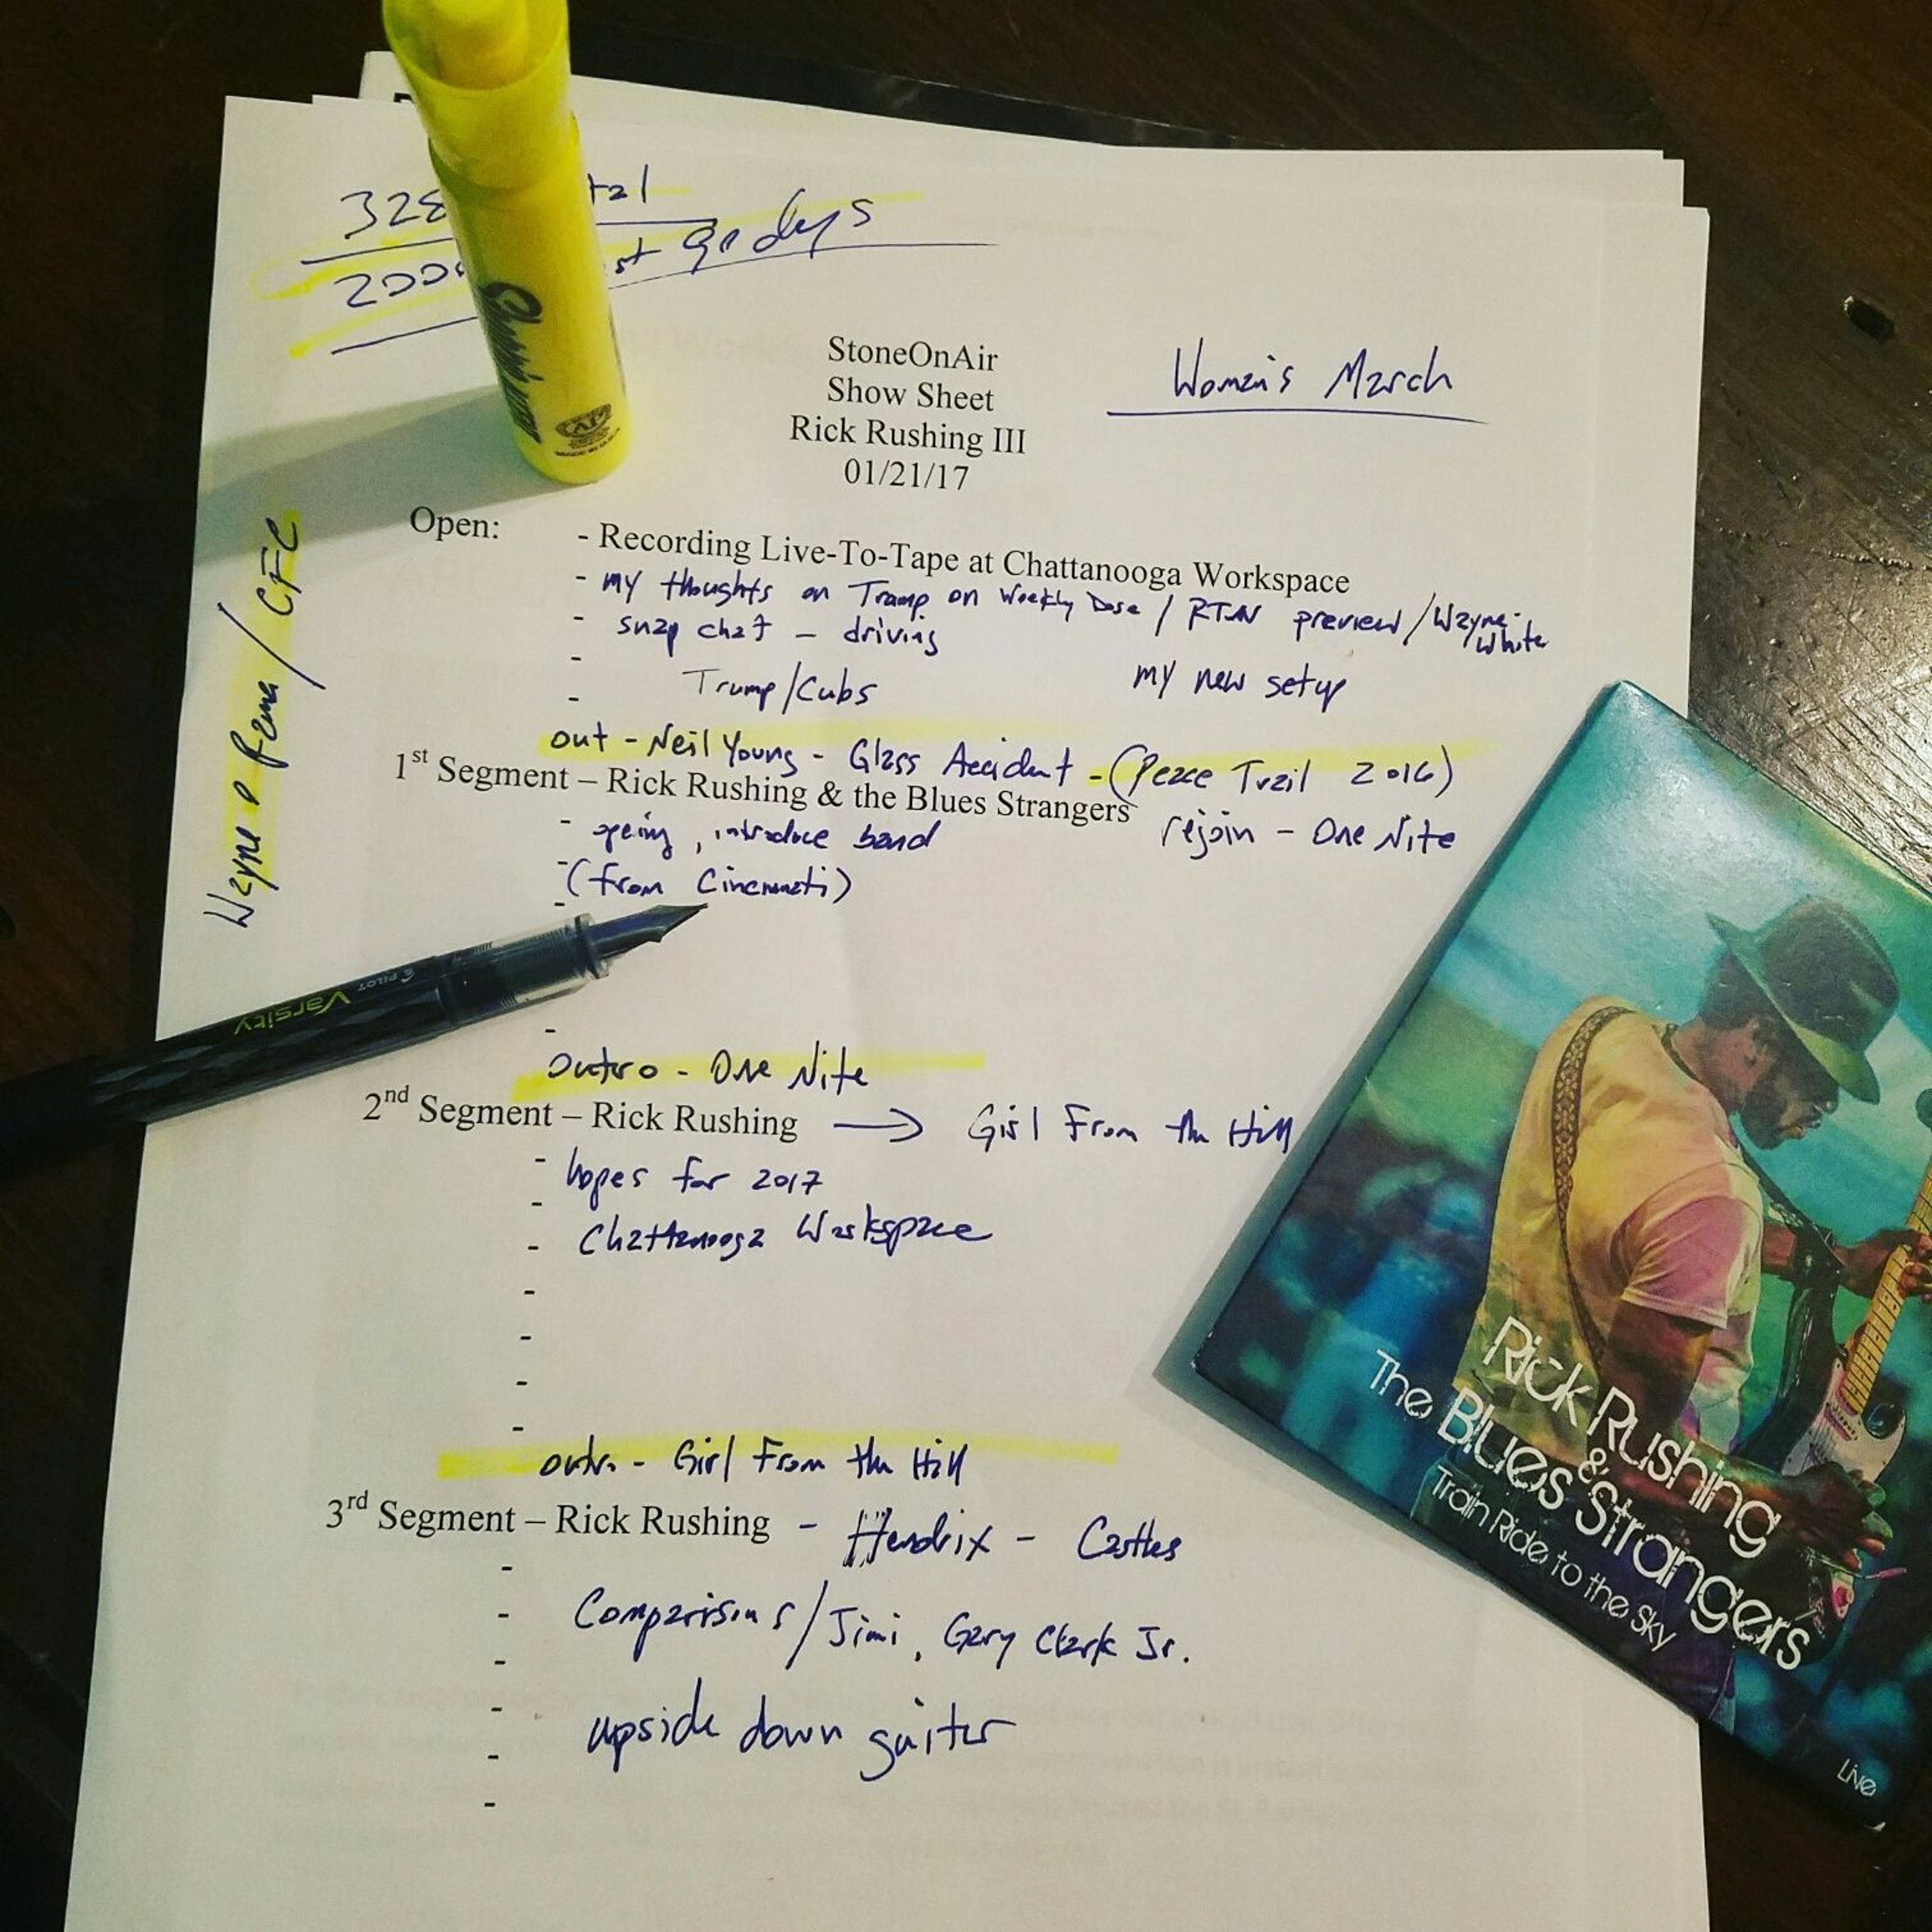 90 days
StoneOnAir
Show Sheet
Rick Rushing III
01/21/17
Women's March
Open:
- Recording Live-To-Tape at Chattanooga Workspace
- my thoughts on Trump on Weekly Dose / RTN preview / Wayne-White
- snap chat - driving
-
- Trump/Cubs my new setup
out - Neil Young - Glass Accident - (Peace Trail 2016)
1st Segment – Rick Rushing & the Blues Strangers
rejoin - One Nite
- opening, introduce band
- (from Cincinnati)
-
-
outro - One Nite
2nd Segment – Rick Rushing → Girl From the Hill
- hopes for 2017
-
- Chattanooga Workspace
-
-
-
-
outro - Girl From the Hill
3rd Segment – Rick Rushing - Hendrix - Castles
-
- Comparisons/Jimi, Gary Clark Jr.
-
- upside down guitar
-
-
Wayne @ / CFC
PILOT
Varsity
AP
Rick Rushing
&
The Blues Strangers
Train Ride to the Sky
Live